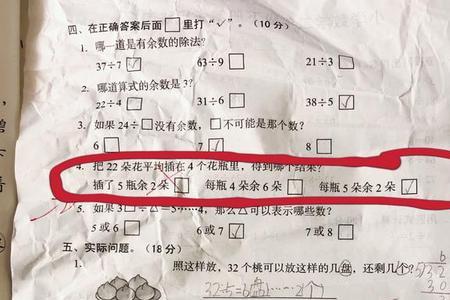 四、在正确答案后面□里打“✓”。(10分)
1. 哪一道是有余数的除法?
37÷7 ☑ 63÷9 □ 21÷3 □
2. 哪道算式的余数是3?
22÷4 □ 31÷6 □ 38÷5 ☑
3. 如果24÷□没有余数,□不可能是那个数?
6 □ 7 ☑ 8 □
4. 把22朵花平均插在4个花瓶里,得到哪个结果?
插了5瓶余2朵 □ 每瓶4朵余6朵 □ 每瓶5朵余2朵 ☑
5. 如果3□÷△=5……4,那么△可以表示哪些数?
5或6 □ 6或7 ☑ 7或8 □
五、实际问题。(18分)
照这样放,32个桃可以放这样的几盘,还剩几个?
32÷5=6(盘)……2(个)